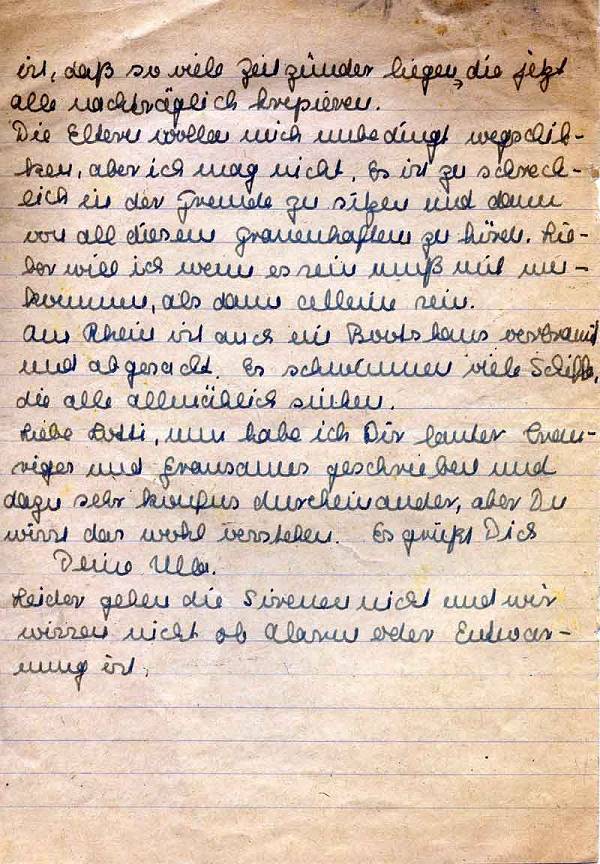 ist, daß so viele Zeitzünder liegen, die jetzt
alle nachträglich krepieren.
Die Eltern wollen mich unbedingt wegschik-
ken, aber ich mag nicht. Es ist zu schreck-
lich in der Fremde zu sitzen und dann
von all diesem grauenhaftem zu hören. Lie-
ber will ich wenn es sein muß mit um-
kommen, als dann alleine sein.
Am Rhein ist auch ein Bootshaus verbrannt
und abgesackt. Es schwimmen viele Schiffe,
die alle allmählich sinken.
Liebe Lotti, nun habe ich Dir lauter Trau-
riges und Grausames geschrieben und
dazu sehr konfus durcheinander, aber Du
wirst das wohl verstehen. Es grüßt Dich
Deine Ulla.
Leider gehen die Sirenen nicht und wir
wissen nicht ob Alarm oder Entwar-
nung ist.